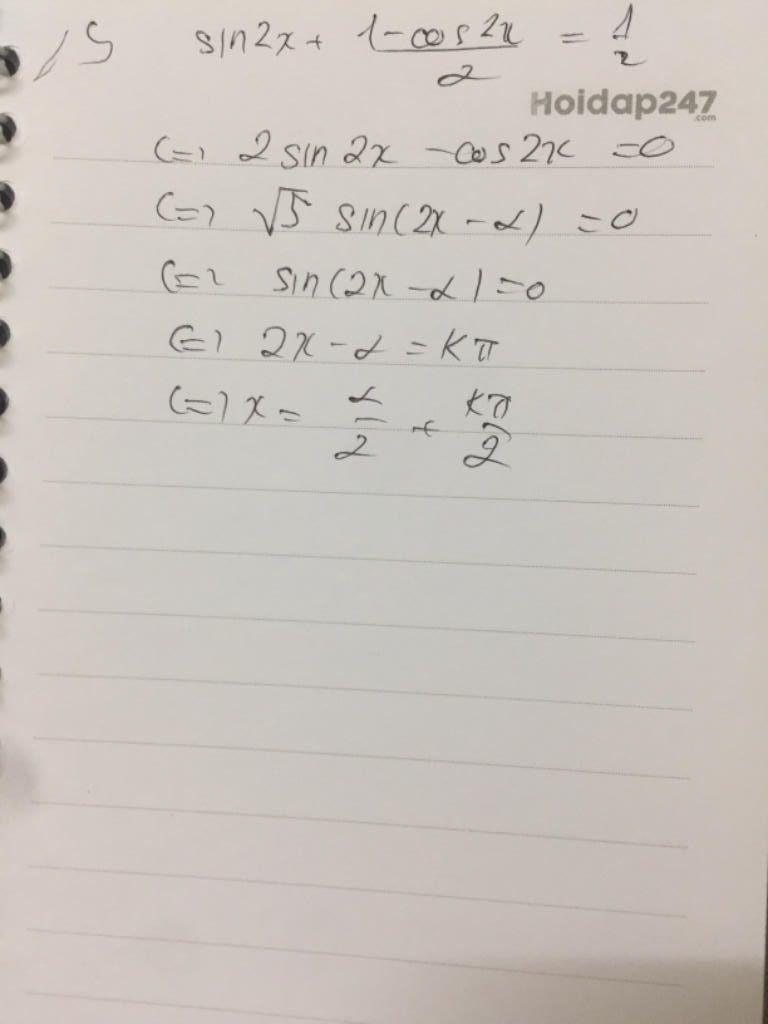 /5 sin2x + (1-cos2x)/2 = 1/2
Hoidap247
.com
(=) 2 sin 2x - cos2x = 0
(=) √5 sin(2x - α) = 0
(=) sin(2x - α) = 0
(=) 2x - α = kπ
(=) x = α/2 + kπ/2